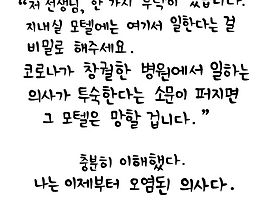 “저 선생님, 한 가지 부탁이 있습니다.
지내실 모텔에는 여기서 일한다는 걸
비밀로 해주세요.
코로나가 창궐한 병원에서 일하는
의사가 투숙한다는 소문이 퍼지면
그 모텔은 망할 겁니다.”
충분히 이해했다.
나는 이제부터 오염된 의사다.